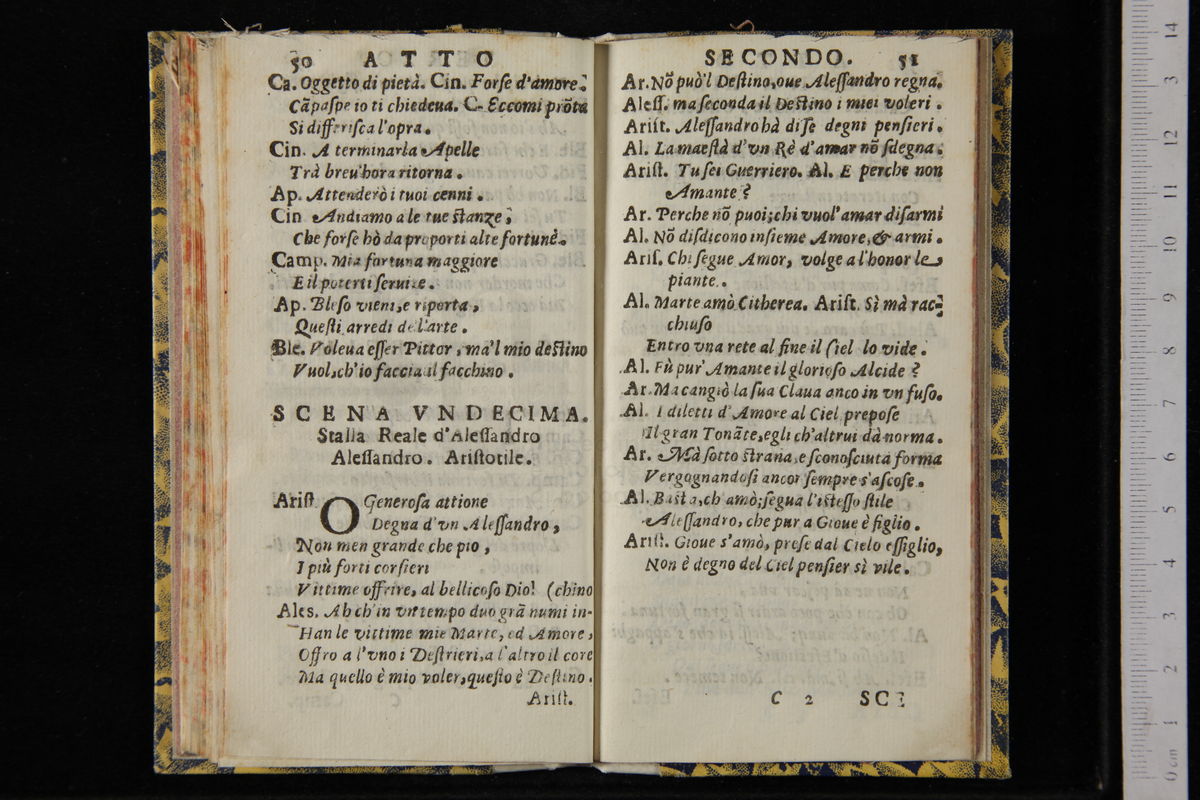 50 ATTO
Ca. Oggetto di pietà. Cin. Forſe d'amore.
Cãpaſpe io ti chiedeua. C. Eccomi prõta
Si differiſca l'opra.
Cin. A terminarla Apelle
Trà breu'hora ritorna.
Ap. Attenderò i tuoi cenni.
Cin. Andiamo a le tue ſtanze,
Che forſe hò da proporti alte fortune.
Camp. Mia fortuna maggiore
E il poterti ſeruire.
Ap. Bleſo vieni, e riporta,
Queſti arredi de l'arte.
Ble. Voleua eſſer Pittor, ma'l mio deſtino
Vuol, ch'io faccia il facchino.
SCENA VNDECIMA.
Stalla Reale d'Aleſſandro
Aleſſandro. Ariſtotile.
Ariſt. O Generoſa attione
Degna d'vn Aleſſandro,
Non men grande che pio,
I più forti corſieri
Vittime offrire, al bellicoſo Dio! (chino
Ales. Ah ch'in vn tempo duo grã numi in-
Han le vittime mie Marte, ed Amore,
Offro a l'vno i Deſtrieri, a l'altro il core
Ma quello è mio voler, queſto è Deſtino.
Ariſt.
SECONDO. 51
Ar. Nõ può'l Deſtino, oue Aleſſandro regna.
Aleſſ. ma ſeconda il Deſtino i miei voleri.
Ariſt. Aleſſandro hà di ſe degni penſieri.
Al. La maeſtà d'vn Rè d'amar nõ ſdegna.
Ariſt. Tu ſei Guerriero. Al. E perche non
Amante?
Ar. Perche nõ puoi; chi vuol'amar diſarmi
Al. Nõ diſdicono inſieme Amore, & armi.
Ariſ. Chi ſegue Amor, volge a l'honor le
piante.
Al. Marte amò Citherea. Ariſt. Sì mà rac-
chiuſo
Entro vna rete al fine il Ciel lo vide.
Al. Fù pur'Amante il glorioſo Alcide?
Ar. Ma cangiò la ſua Claua anco in vn fuſo.
Al. I diletti d'Amore al Ciel prepoſe
Il gran Tonãte, egli ch'altrui dà norma.
Ar. Mà ſotto ſtrana, e ſconoſciuta forma
Vergognandoſi ancor ſempre s'aſcoſe.
Al. Baſta, ch'amò; ſegua l'iſteſſo ſtile
Aleſſandro, che pur a Gioue è figlio.
Ariſt. Gioue s'amò, preſe dal Cielo eſſiglio,
Non è degno del Ciel penſier sì vile.
C 2 SCE